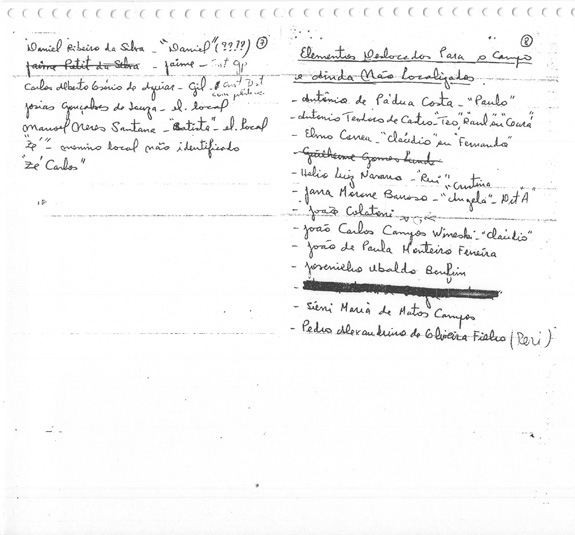 Daniel Ribeiro da Silva - "Daniel" (????) (7)
Jaime Petit da Silva - Jaime - gp
Carlos Alberto Osório de Aguiar - Gil - Dst
com
Josias Gonçalves de Souza - el. local
Manuel Neres Santana - "Batista" - el. local
"Zé" - menino local não identificado
"Zé Carlos"
(8)
Elementos Deslocados Para o Campo
e Ainda Não Localizados
- Antônio de Pádua Costa - "Paulo"
- Antonio Teodoro de Castro - "Teo", "Raul" ou "Ceará"
- Elmo Correa - "Cláudio" ou "Fernando"
- Guilherme Gomes Lund
- Helio Luiz Navarro - "Rui", "Cristina"
- Jana Morone Barroso - "Angela" - Dst "A"
- João Colatoni
- João Carlos Campos Wineski - "Cláudio"
- João de Paula Monteiro Ferreira
- Josenielho Ubaldo Bonfim
- Sieni Maria de Matos Campos
- Pedro Alexandrino de Oliveira Filho (Peri)